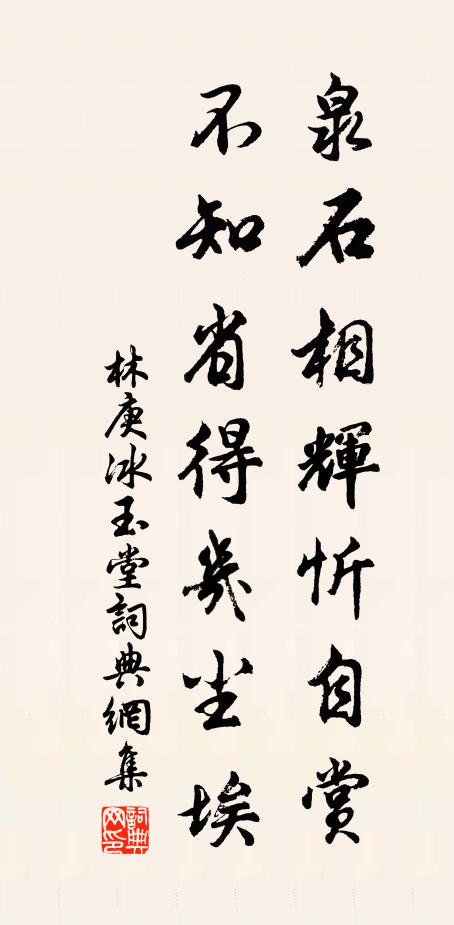 泉石相輝忻自賞
不知省得幾塵埃
林庚冰玉堂詞典網集
詞典網印